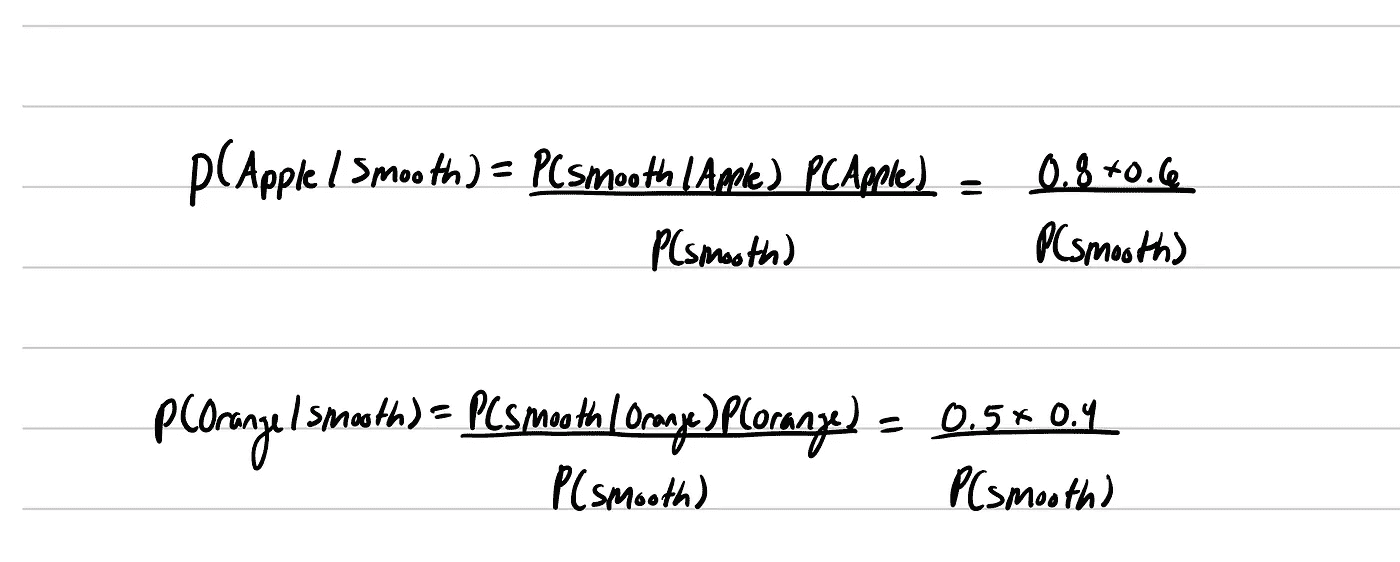 P(Apple/Smooth) = P(smooth/Apple) P(Apple) / P(smooth) = 0.8 × 0.6 / P(smooth)
P(Orange/smooth) = P(smooth/Orange)P(orange) / P(smooth) = 0.5 × 0.4 / P(smooth)